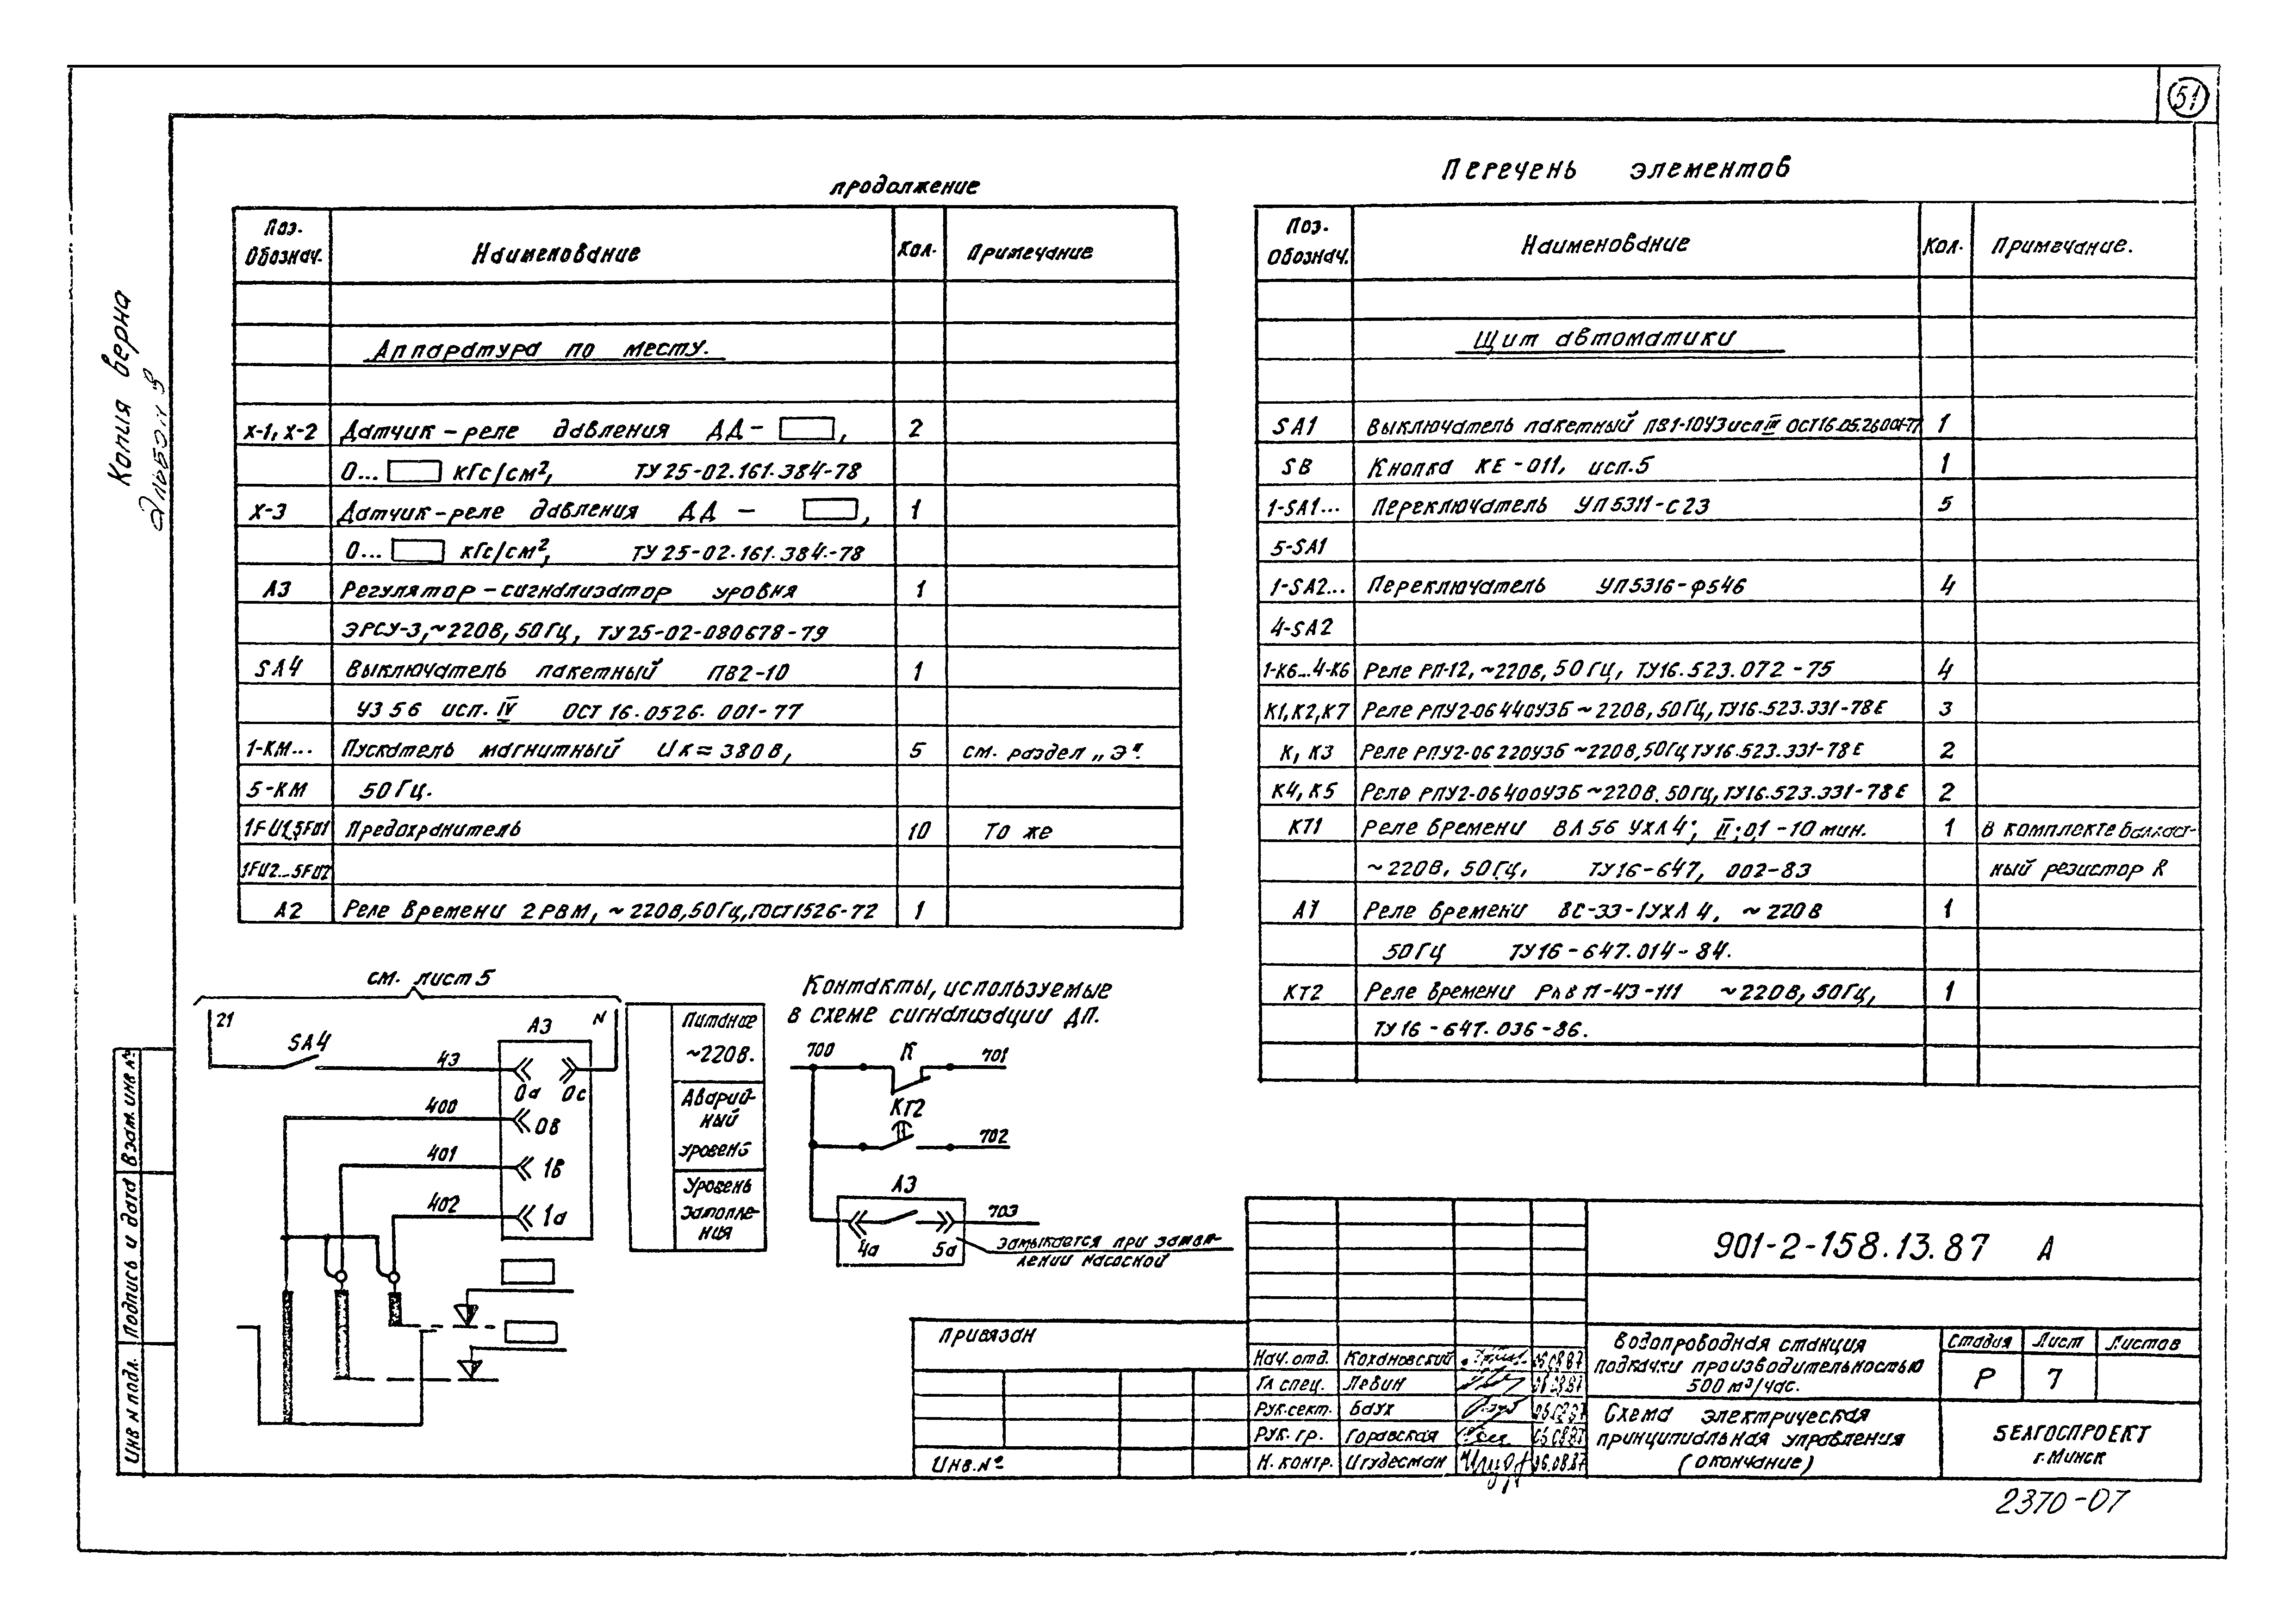 51
Копия верна
Альбом 3
продолжение
Поз. Обознач. Наименование Кол. Примечание
Аппаратура по месту.
х-1, х-2 Датчик-реле давления ДД- , 2
0... кгс/см², ТУ 25-02.161.384-78
х-3 Датчик-реле давления ДД - , 1
0... кгс/см², ТУ 25-02.161.384-78
А3 Регулятор-сигнализатор уровня 1
ЭРСУ-3, ~220В, 50Гц, ТУ25-02-080678-79
SA4 Выключатель пакетный ПВ2-10 1
У3 56 исп. IV ОСТ 16.0526.001-77
1-КМ... Пускатель магнитный Uк≈380В, 5 см. раздел „Э".
5-КМ 50Гц.
1FU1,5FU1 Предохранитель 10 То же
1FU2...5FU2
А2 Реле времени 2РВМ, ~220В,50Гц,ГОСТ1526-72 1
Перечень элементов
Поз. Обознач. Наименование Кол. Примечание.
Щит автоматики
SA1 Выключатель пакетный ПВ1-10У3 исп III ОСТ16.05.26001-77 1
SB Кнопка КЕ-011, исп.5 1
1-SA1... Переключатель УП5311-с23 5
5-SA1
1-SA2... Переключатель УП5316-ф546 4
4-SA2
1-К6...4-К6 Реле РП-12, ~220В, 50Гц, ТУ16.523.072-75 4
К1,К2,К7 Реле РПУ2-06440У3Б ~220В,50Гц,ТУ16.523.331-78Е 3
К, К3 Реле РПУ2-06220У3Б ~220В,50Гц ТУ16.523.331-78Е 2
К4, К5 Реле РПУ2-06400У3Б ~220В.50Гц,ТУ16.523.331-78Е 2
КТ1 Реле времени ВЛ56 УХЛ4; II;01-10 мин. 1 В комплекте балласт-
~220В, 50Гц, ТУ16-647, 002-83 ный резистор R
А1 Реле времени ВС-33-1УХЛ4, ~220В 1
50Гц ТУ16-647.014-84.
КТ2 Реле времени РВП-43-111 ~220В, 50Гц, 1
ТУ16-647.036-86.
см. лист 5
21
SA4
43
А3
N
0а 0с
400
0в
401
1в
402
1а
Питание
~220В.
Аварий-
ный
уровень
Уровень
затопле-
ния
Контакты, используемые
в схеме сигнализации ДП.
700 К 701
КТ2
702
А3
703
4а 5а
замыкается при затоп-
лении насосной
Взам. инв №
Подпись и дата
Инв N подл.
Привязан
Инв.№
901-2-158.13.87 А
Нач. отд. Кохановский 06.08.87
Гл спец. Левин 06.08.87
Рук.сект. Баух 06.08.87
Рук. гр. Горавская 06.08.87
Н. контр. Игудесман 06.08.87
Водопроводная станция
подкачки производительностью
500 м³/час.
Стадия Лист Листов
Р 7
Схема электрическая
принципиальная управления
(окончание)
БЕЛГОСПРОЕКТ
г. Минск
2370-07